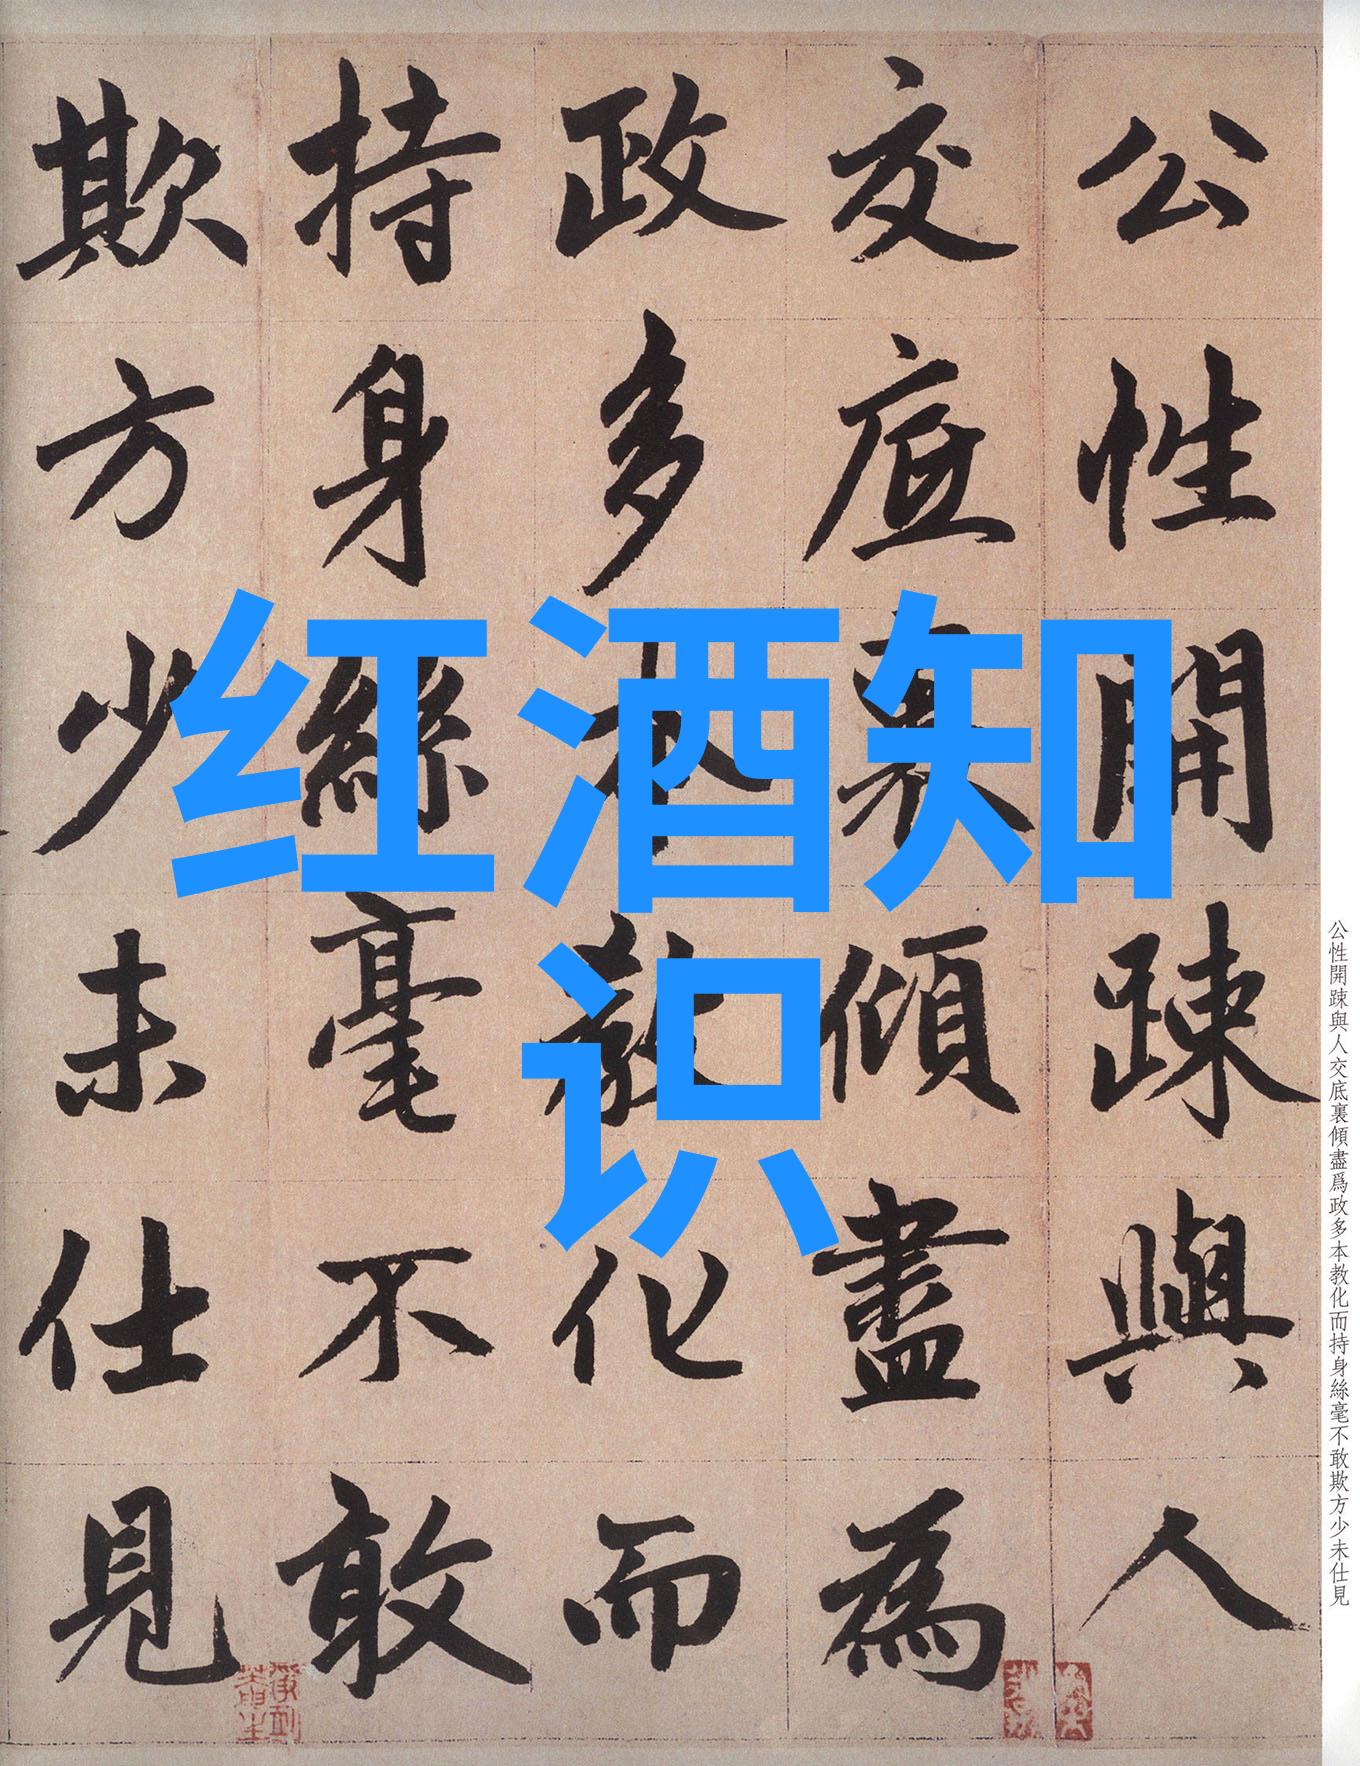 红酒知
识
公性開踈與人
交底裏傾盡為
政多本教化而
持身絲毫不敢
欺方少未仕見
公性開踈與人交底裏傾盡爲政多本教化而持身絲毫不敢欺方少未仕見